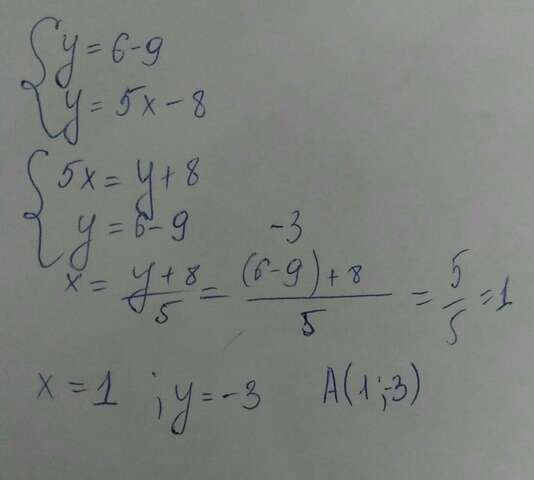 { y = 6 - 9
y = 5x - 8
{ 5x = y + 8
y = 6 - 9 -3
x = (y + 8)/5 = ((6 - 9) + 8)/5 = 5/5 = 1
x = 1 ; y = -3 A(1; -3)